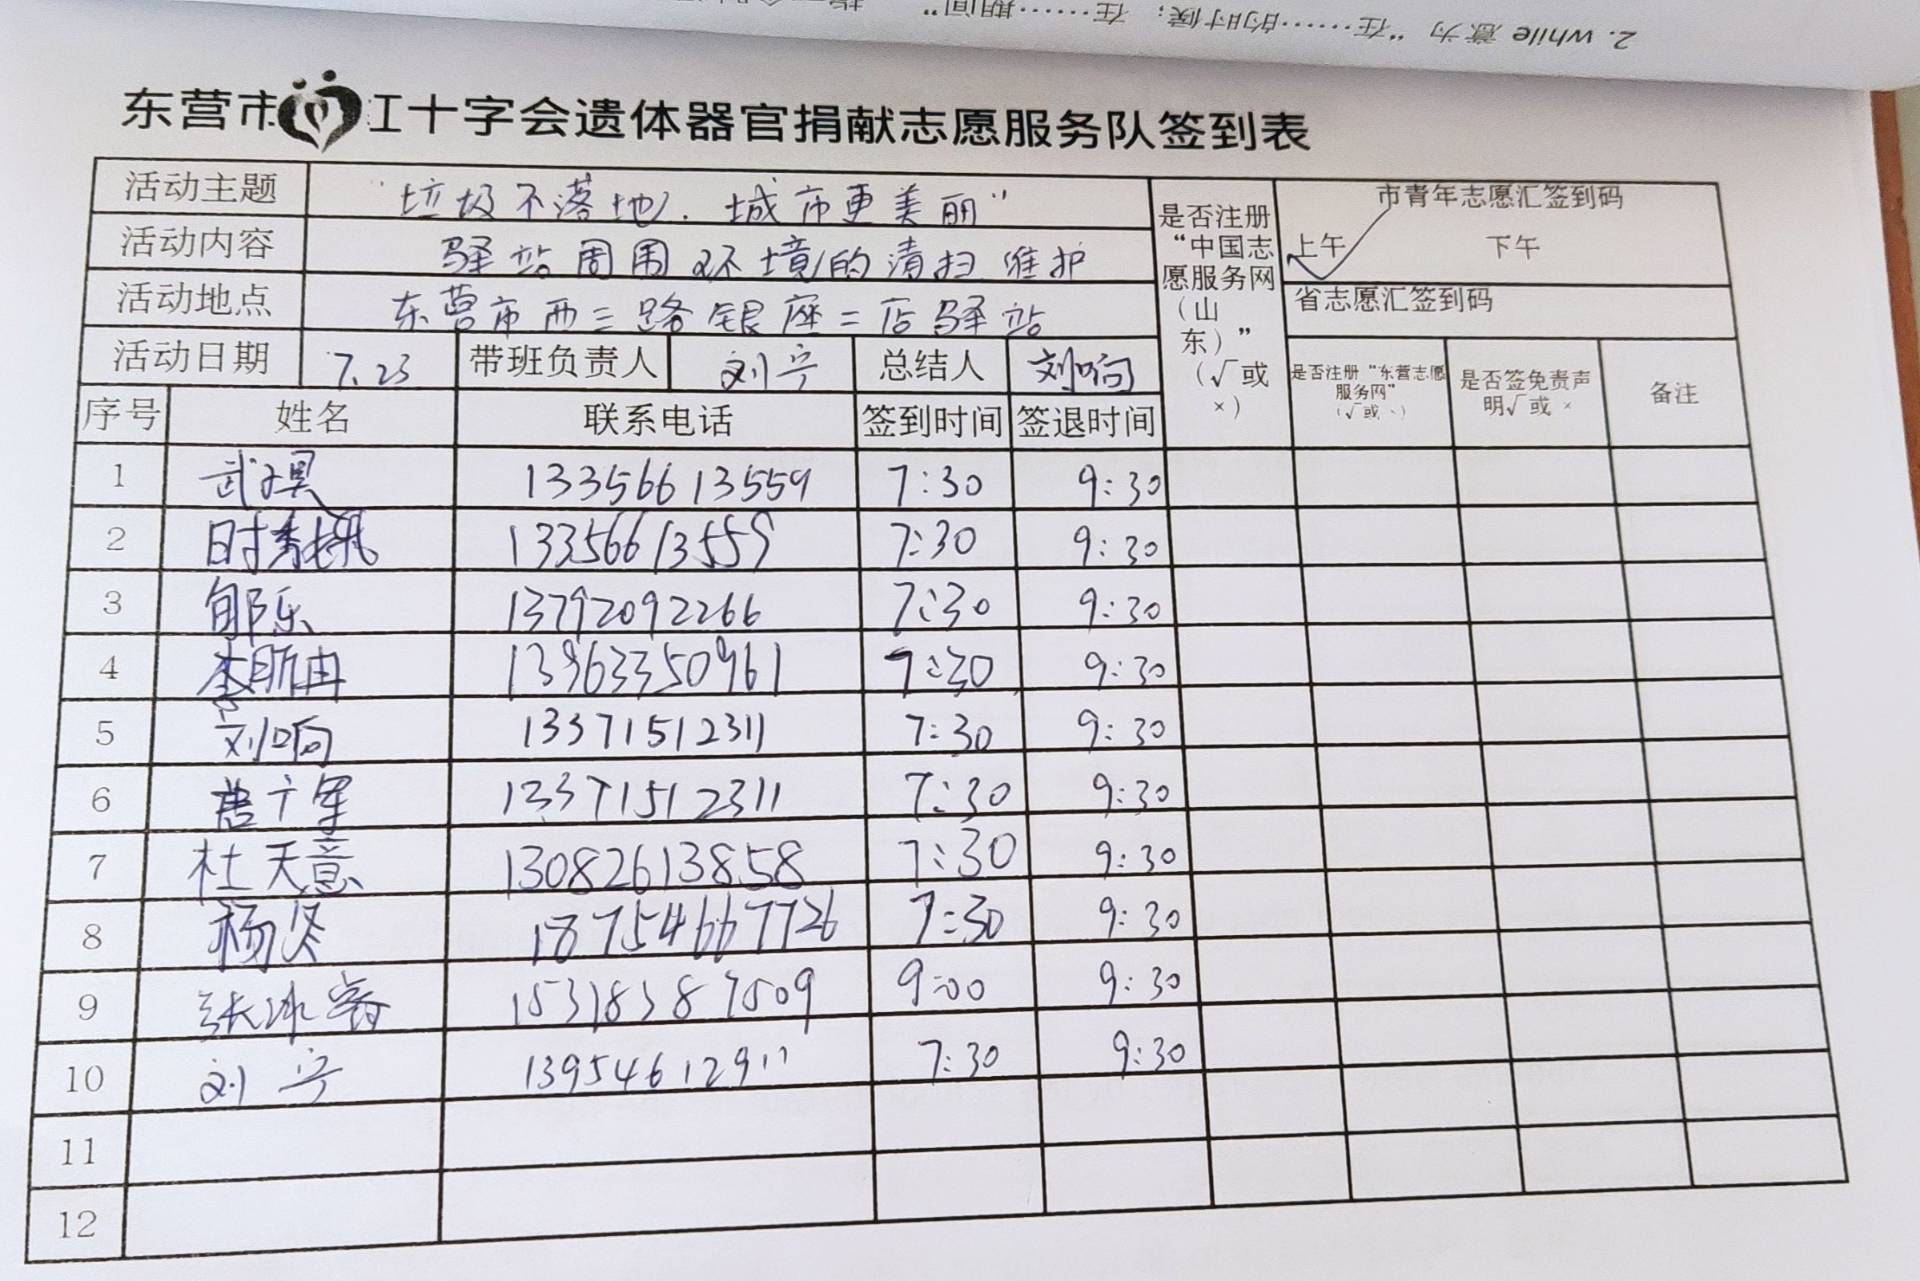 2. while 意为 “在……的时候；在……期间”
东营市红十字会遗体器官捐献志愿服务队签到表
活动主题 “垃圾不落地，城市更美丽” 是否注册“中国志愿服务网（山东）”（√或×） 市青年志愿汇签到码
活动内容 驿站周围环境的清扫维护 上午 √ 下午
活动地点 东营市西三路银座二店驿站 省志愿汇签到码
活动日期 7.23 带班负责人 刘宁 总结人 刘响 是否注册“东营志愿服务网”（√或、） 是否签免责声明√或× 备注
序号 姓名 联系电话 签到时间 签退时间
1 武 13356613559 7:30 9:30
2 时秀 13356613559 7:30 9:30
3 郇乐 13792092266 7:30 9:30
4 李 13963350961 7:30 9:30
5 刘响 13371512311 7:30 9:30
6 军 13371512311 7:30 9:30
7 杜天意 13082613858 7:30 9:30
8 杨坚 18754667726 7:30 9:30
9 张冰睿 15318387509 9:00 9:30
10 刘宁 13954612911 7:30 9:30
11
12